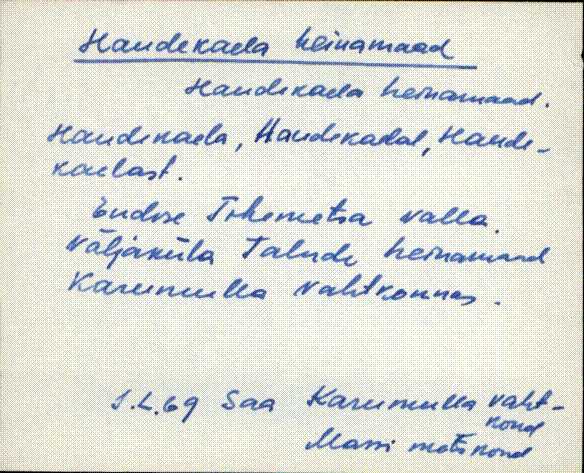 Haudekaela heinamaad
Haudekaela heinamaad.
Haudekaela, Haudekaelal, Haude-
kaelast.
Endise Tihemetsa valla.
Väljaküla Talude heinamaad
Karumulla vahtkonnas.
S.L.69 Saa Karumulla vaht-
kond
Massi metskond